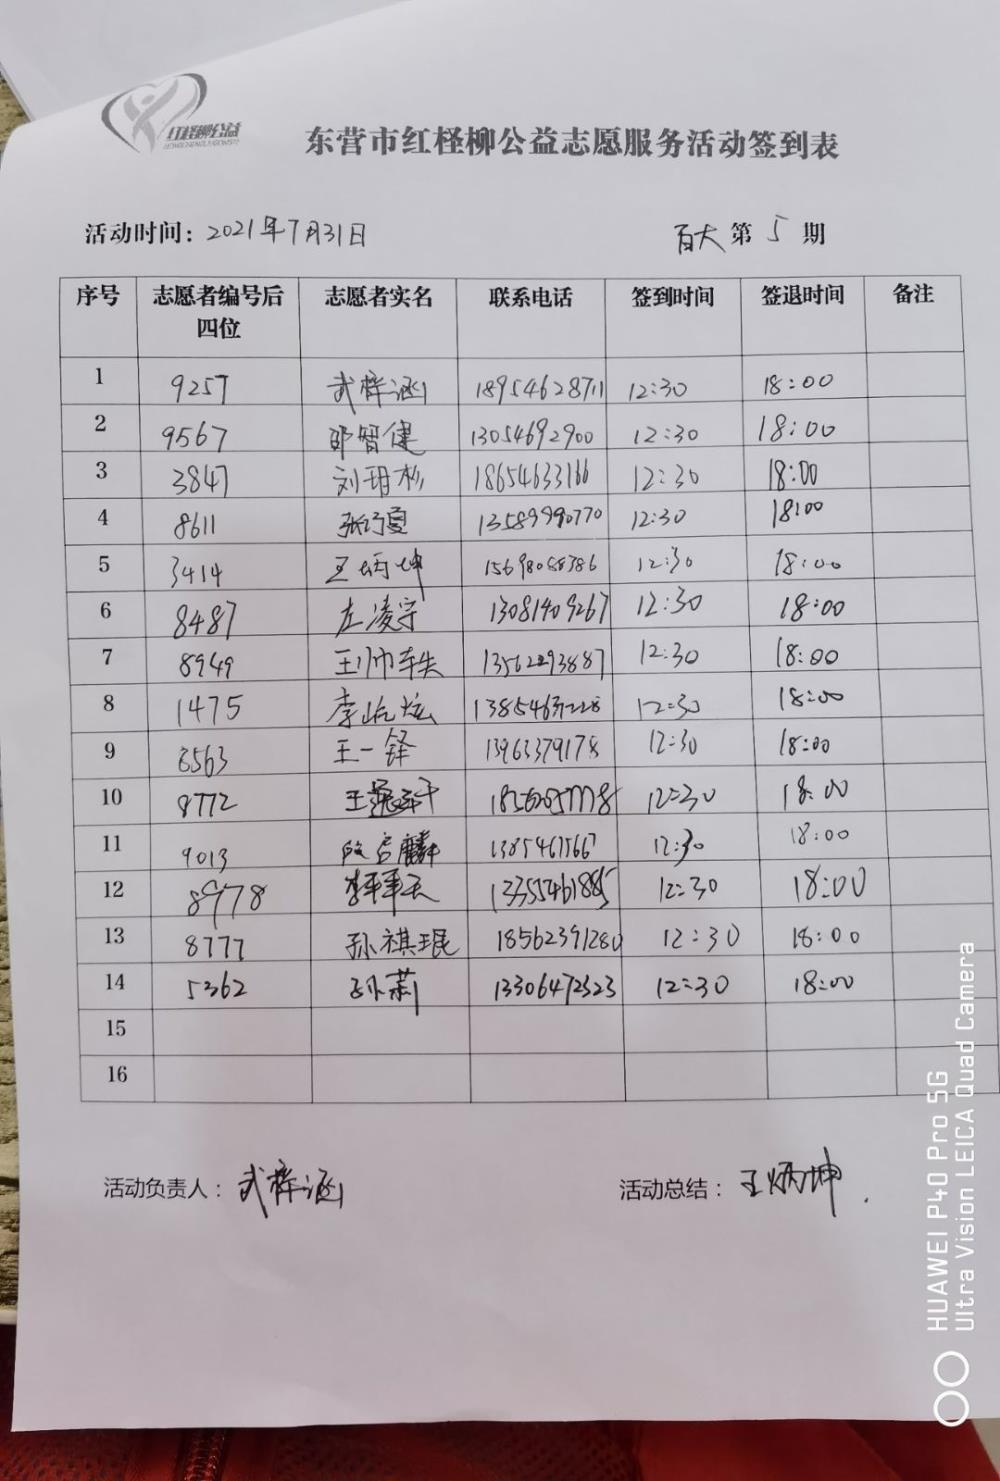 红柽柳公益
东营市红柽柳公益志愿服务活动签到表
活动时间: 2021年7月31日 百大 第 5 期
序号 志愿者编号后四位 志愿者实名 联系电话 签到时间 签退时间 备注
1 9257 武梓涵 18954628711 12:30 18:00
2 9567 邵智健 13054692900 12:30 18:00
3 3847 刘玥杉 18654633166 12:30 18:00
4 8611 13589990770 12:30 18:00
5 3414 王炳坤 12:30 18:00
6 8487 左凌宇 13081409267 12:30 18:00
7 8949 13562293887 12:30 18:00
8 1475 12:30 18:00
9 王一铎 13963379178 12:30 18:00
10 8772 12:30 18:00
11 9013 12:30 18:00
12 8978 12:30 18:00
13 8777 孙祺珉 18562391280 12:30 18:00
14 5262 孙莉 13306472323 12:30 18:00
15
16
活动负责人: 武梓涵 活动总结: 王炳坤
HUAWEI P40 Pro 5G
Ultra Vision LEICA Quad Camera